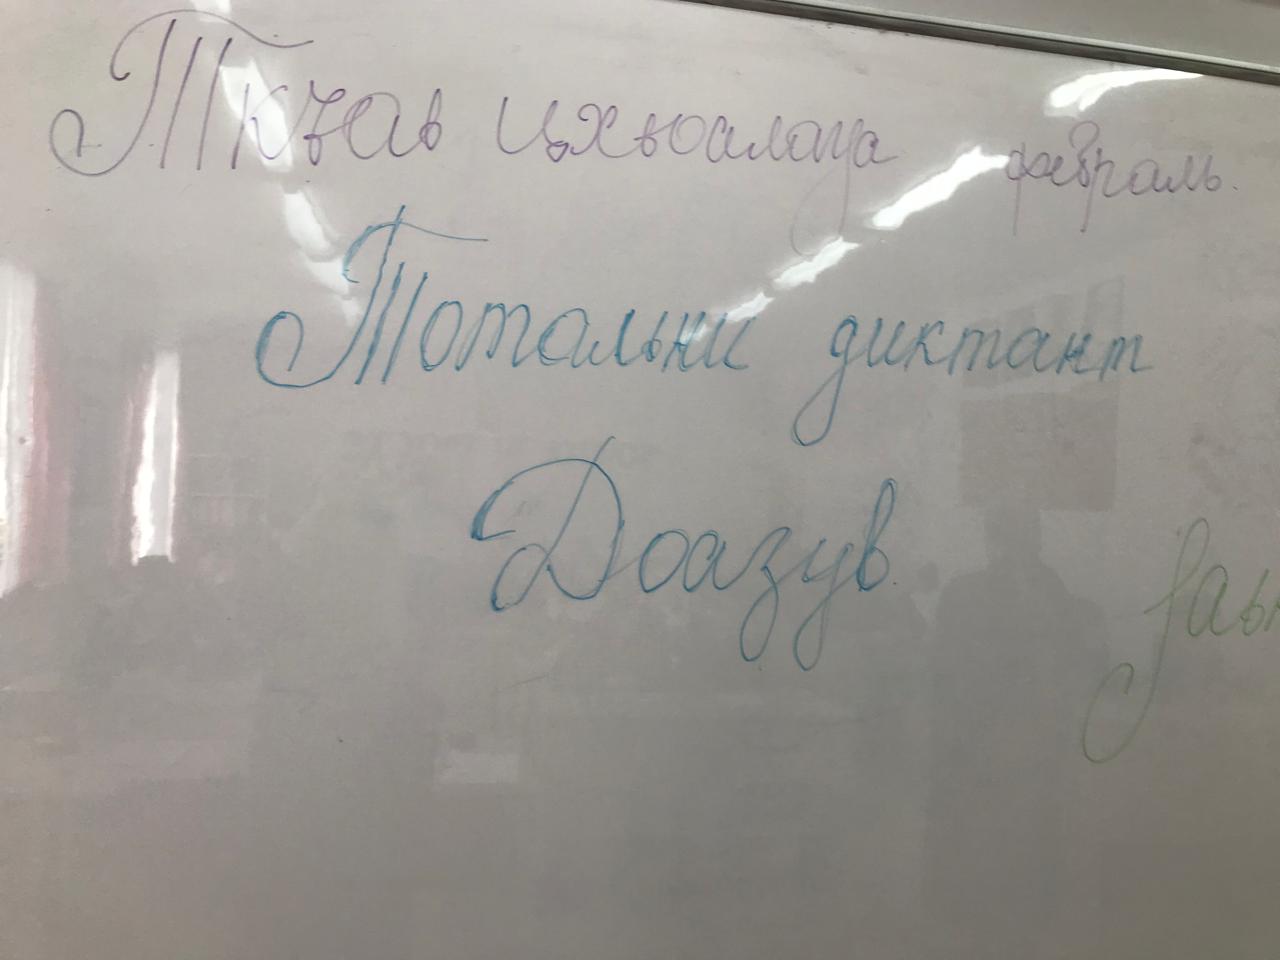 Ткъав цхьоалагӏа февраль.
Тотальни диктант
Доазув.